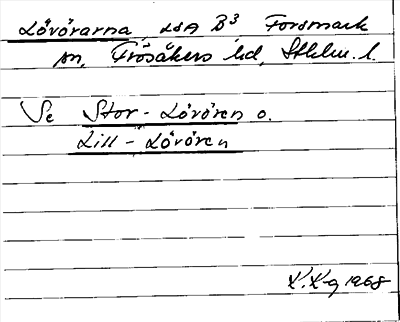 Lövörarna, LSA B³ Forsmark
sn, Frösåkers hd, Sthlm. l.
Se Stor-Lövören o.
Lill-Lövören
K.K-g 1968